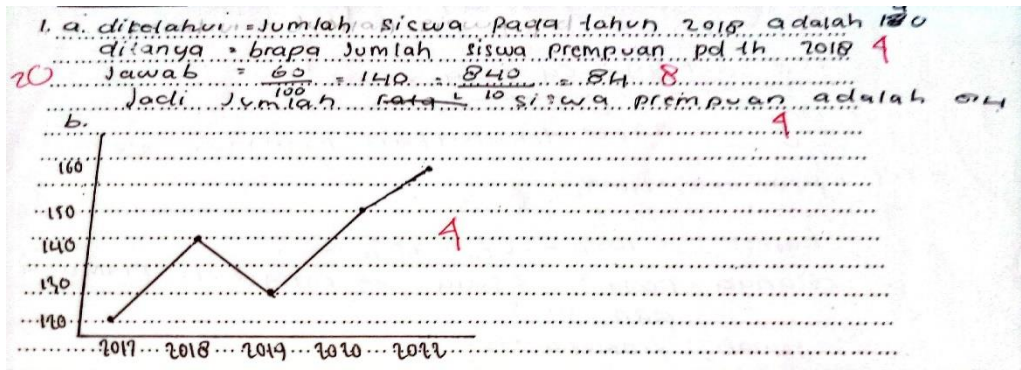 1. a. diketahui = Jumlah siswa pada tahun 2018 adalah 140
ditanya = brapa Jumlah siswa prempuan pd th 2018 4
20 Jawab = 60/100 = 140 = 840/10 = 84 8
Jadi Jumlah rata2 siswa prempuan adalah 84
4
b.
160
150
4
140
130
120
2017 2018 2019 2020 2022